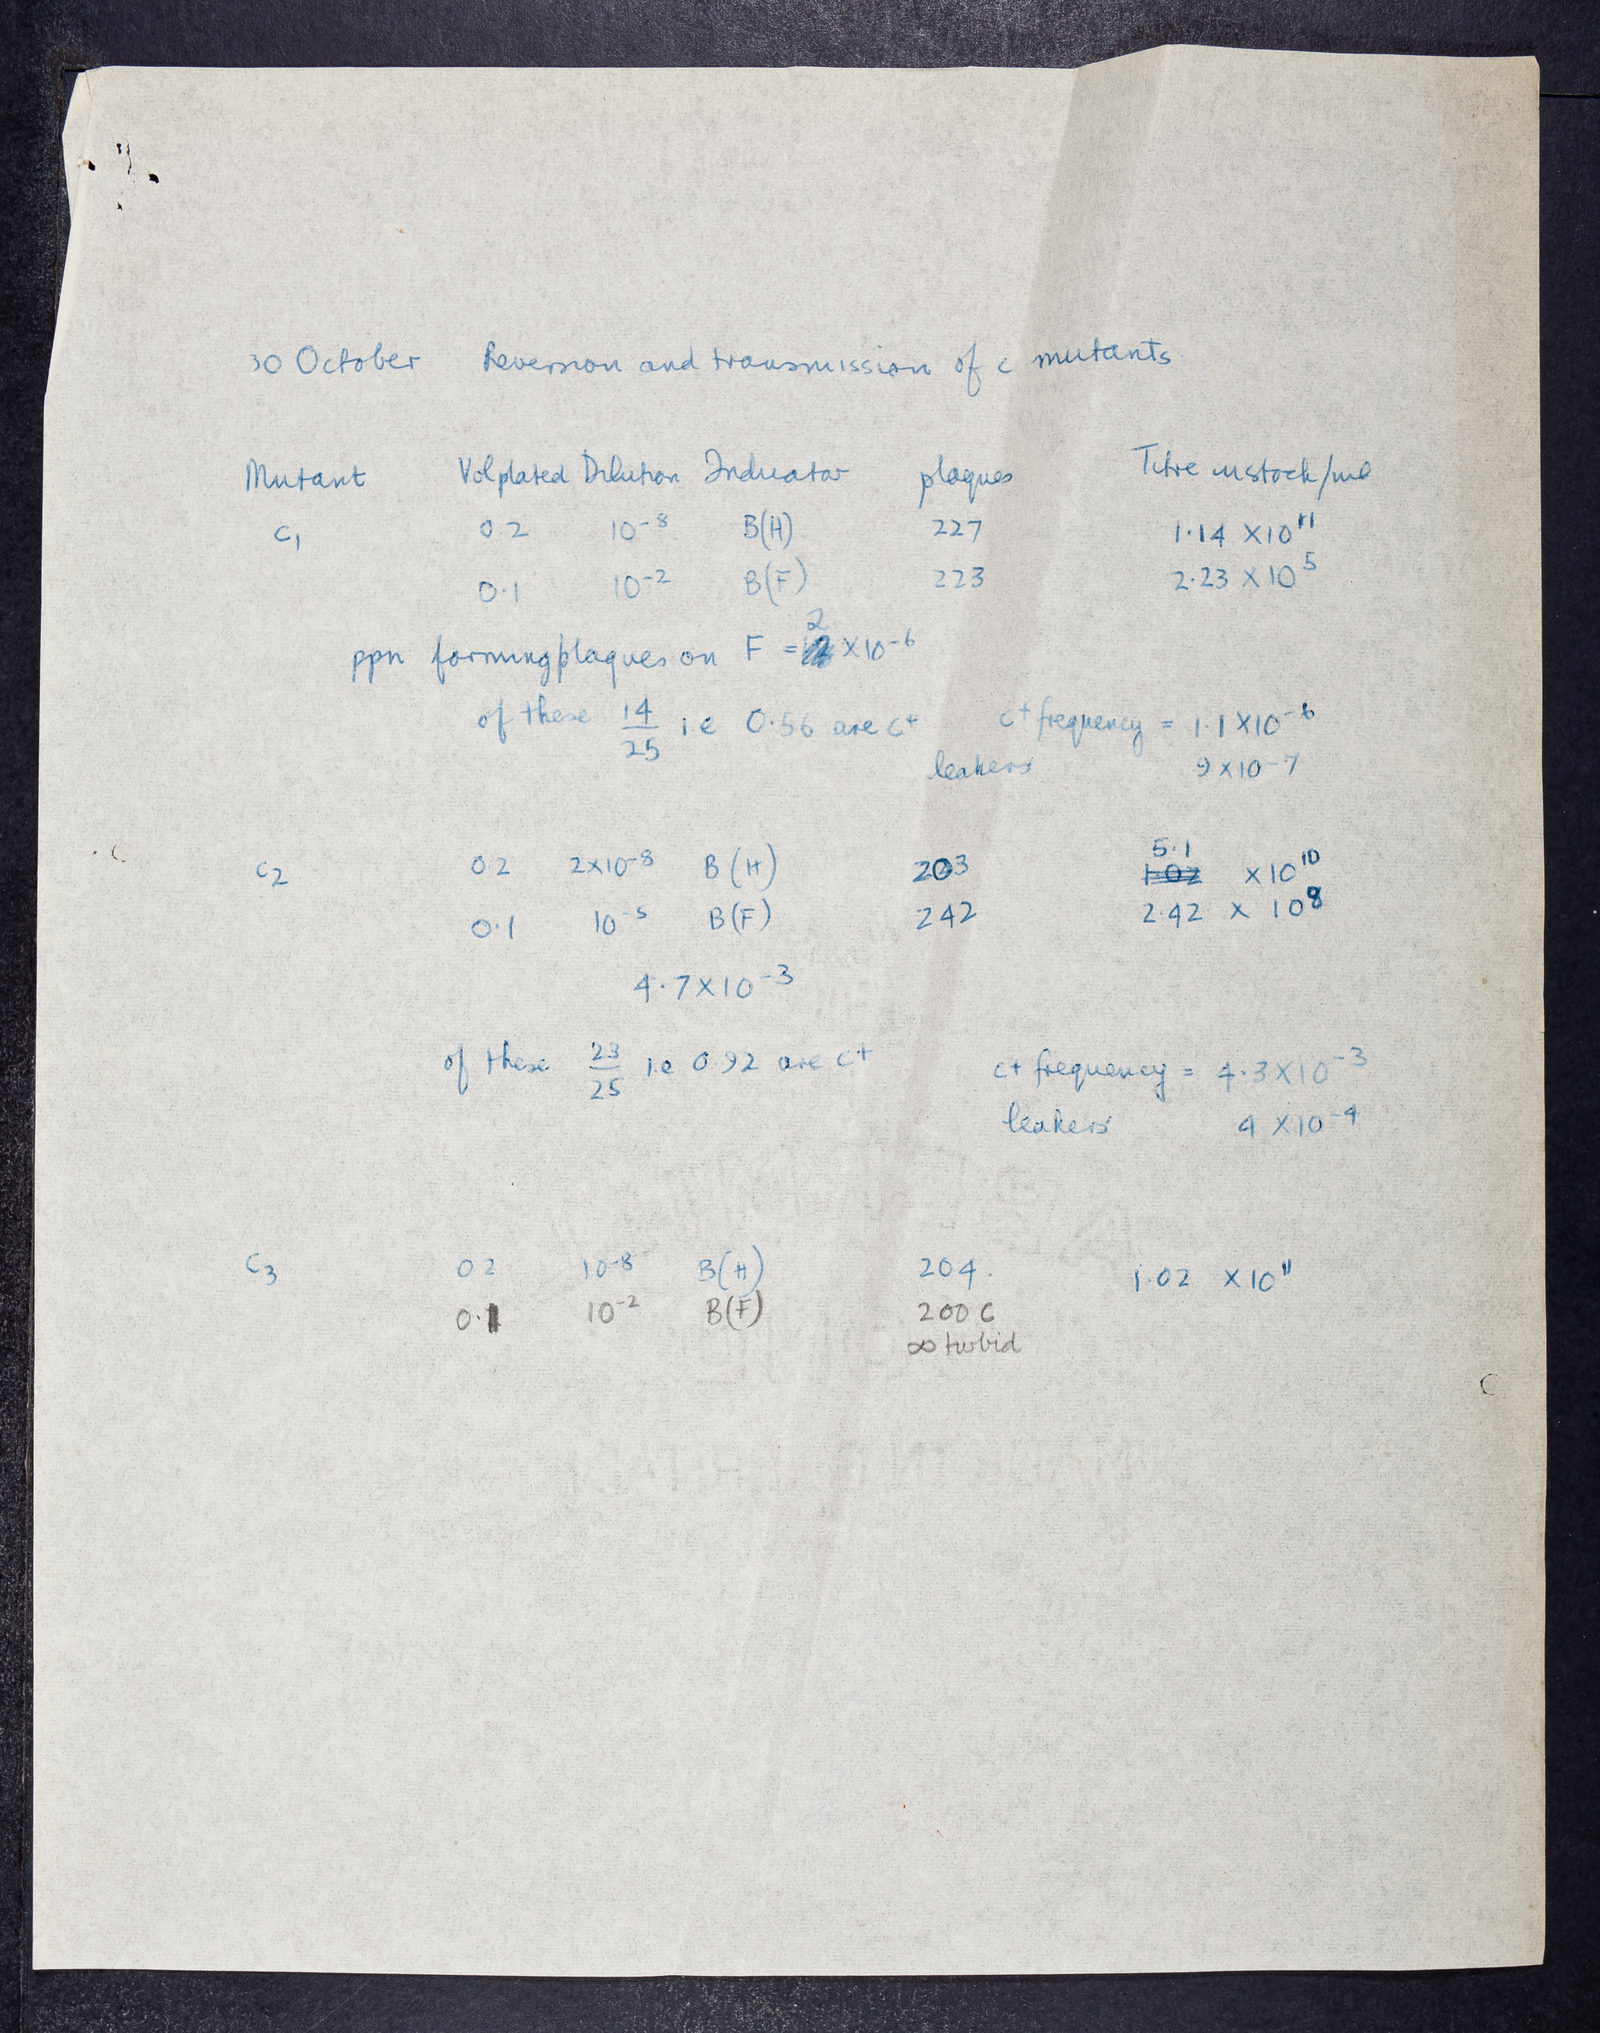 30 October Reversion and transmission of c mutants
Mutant Vol plated Dilution Indicator plaques Titre in stock/ml
c1 0.2 10⁻⁸ B(H) 227 1.14 × 10¹¹
0.1 10⁻² B(F) 223 2.23 × 10⁵
ppn forming plaques on F = 2 × 10⁻⁶
of these 14/25 i.e 0.56 are c⁺ c⁺ frequency = 1.1 × 10⁻⁶
leakers 9 × 10⁻⁷
c2 0.2 2×10⁻⁸ B(H) 203 5.1 1.02 × 10¹⁰
0.1 10⁻⁵ B(F) 242 2.42 × 10⁸
4.7 × 10⁻³
of these 23/25 i.e 0.92 are c⁺ c⁺ frequency = 4.3 × 10⁻³
leakers 4 × 10⁻⁴
c3 0.2 10⁻⁸ B(H) 204 1.02 × 10¹¹
0.1 10⁻² B(F) 200 c
∞ turbid